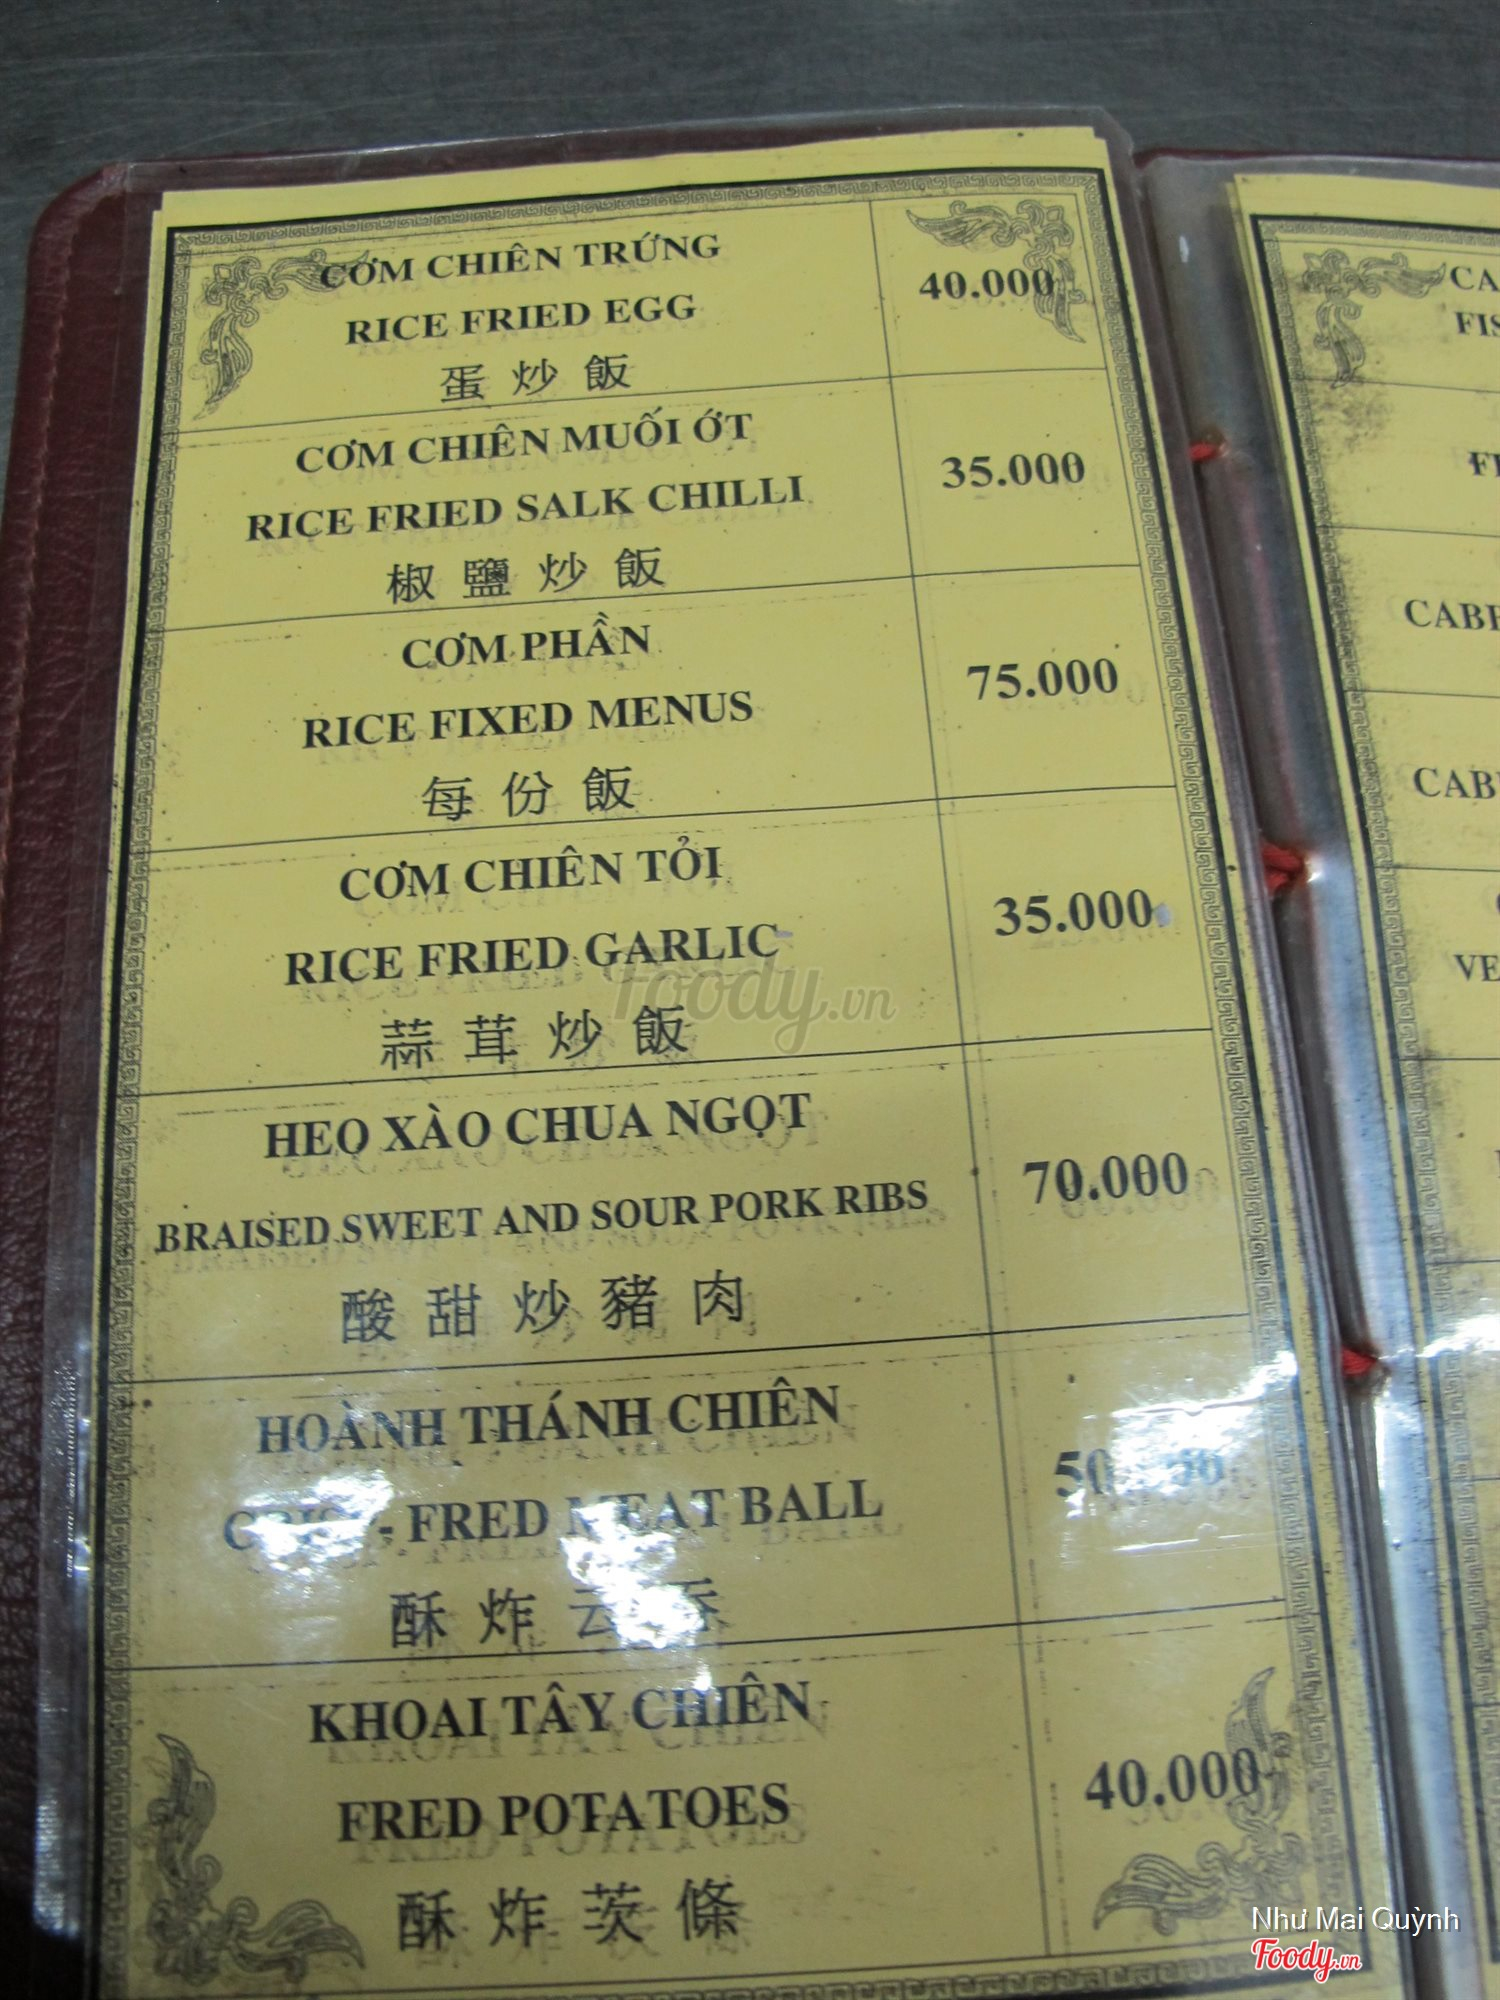 CƠM CHIÊN TRỨNG
RICE FRIED EGG
蛋炒飯
40.000
CƠM CHIÊN MUỐI ỚT
RICE FRIED SALK CHILLI
椒鹽炒飯
35.000
CƠM PHẦN
RICE FIXED MENUS
每份飯
75.000
CƠM CHIÊN TỎI
RICE FRIED GARLIC
蒜茸炒飯
35.000
HEO XÀO CHUA NGỌT
BRAISED SWEET AND SOUR PORK RIBS
酸甜炒豬肉
70.000
HOÀNH THÁNH CHIÊN
- FRED MEAT BALL
酥炸云吞
50.000
KHOAI TÂY CHIÊN
FRED POTATOES
酥炸茨條
40.000
Foody.vn
Như Mai Quỳnh
Foody.vn